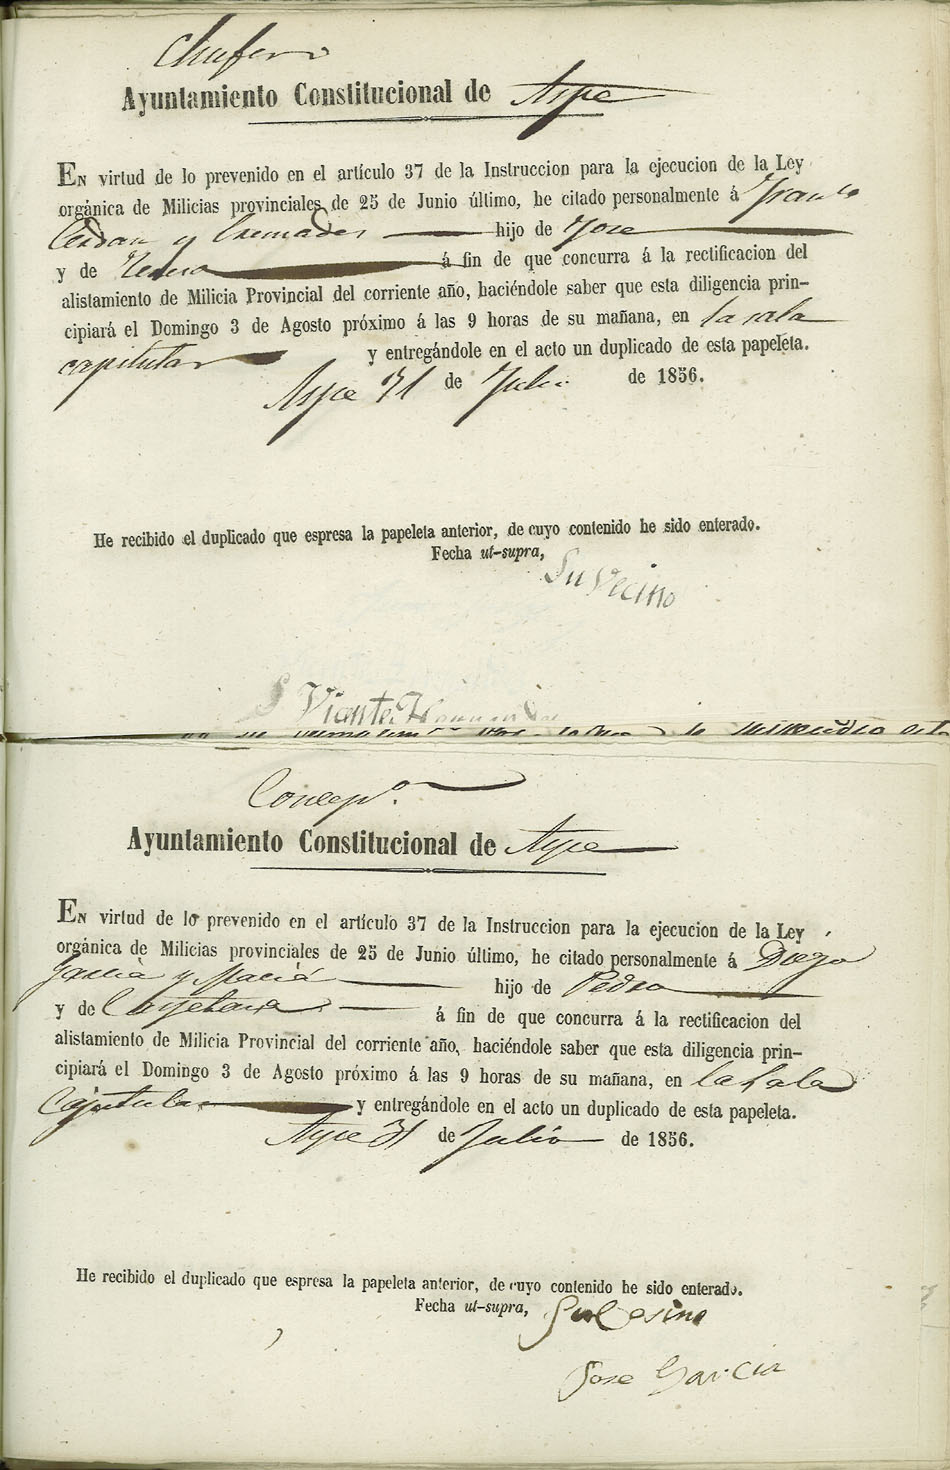 Chufero
Ayuntamiento Constitucional de Aspe
En virtud de lo prevenido en el artículo 37 de la Instruccion para la ejecucion de la Ley
orgánica de Milicias provinciales de 25 de Junio último, he citado personalmente á Franco
y Cremades hijo de Jose
y de á fin de que concurra á la rectificacion del
alistamiento de Milicia Provincial del corriente año, haciéndole saber que esta diligencia prin-
cipiará el Domingo 3 de Agosto próximo á las 9 horas de su mañana, en la sala
capitular y entregándole en el acto un duplicado de esta papeleta.
Aspe 31 de Julio de 1856.
He recibido el duplicado que espresa la papeleta anterior, de cuyo contenido he sido enterado.
Fecha ut-supra,
Su Vecino
Vicente
Concepn.
Ayuntamiento Constitucional de Aspe
En virtud de lo prevenido en el artículo 37 de la Instruccion para la ejecucion de la Ley
orgánica de Milicias provinciales de 25 de Junio último, he citado personalmente á Diego
Garcia y Maciá hijo de Pedro
y de Cayetana á fin de que concurra á la rectificacion del
alistamiento de Milicia Provincial del corriente año, haciéndole saber que esta diligencia prin-
cipiará el Domingo 3 de Agosto próximo á las 9 horas de su mañana, en la Sala
Capitular y entregándole en el acto un duplicado de esta papeleta.
Aspe 31 de Julio de 1856.
He recibido el duplicado que espresa la papeleta anterior, de cuyo contenido he sido enterado.
Fecha ut-supra,
Su Vesino
Jose Garcia